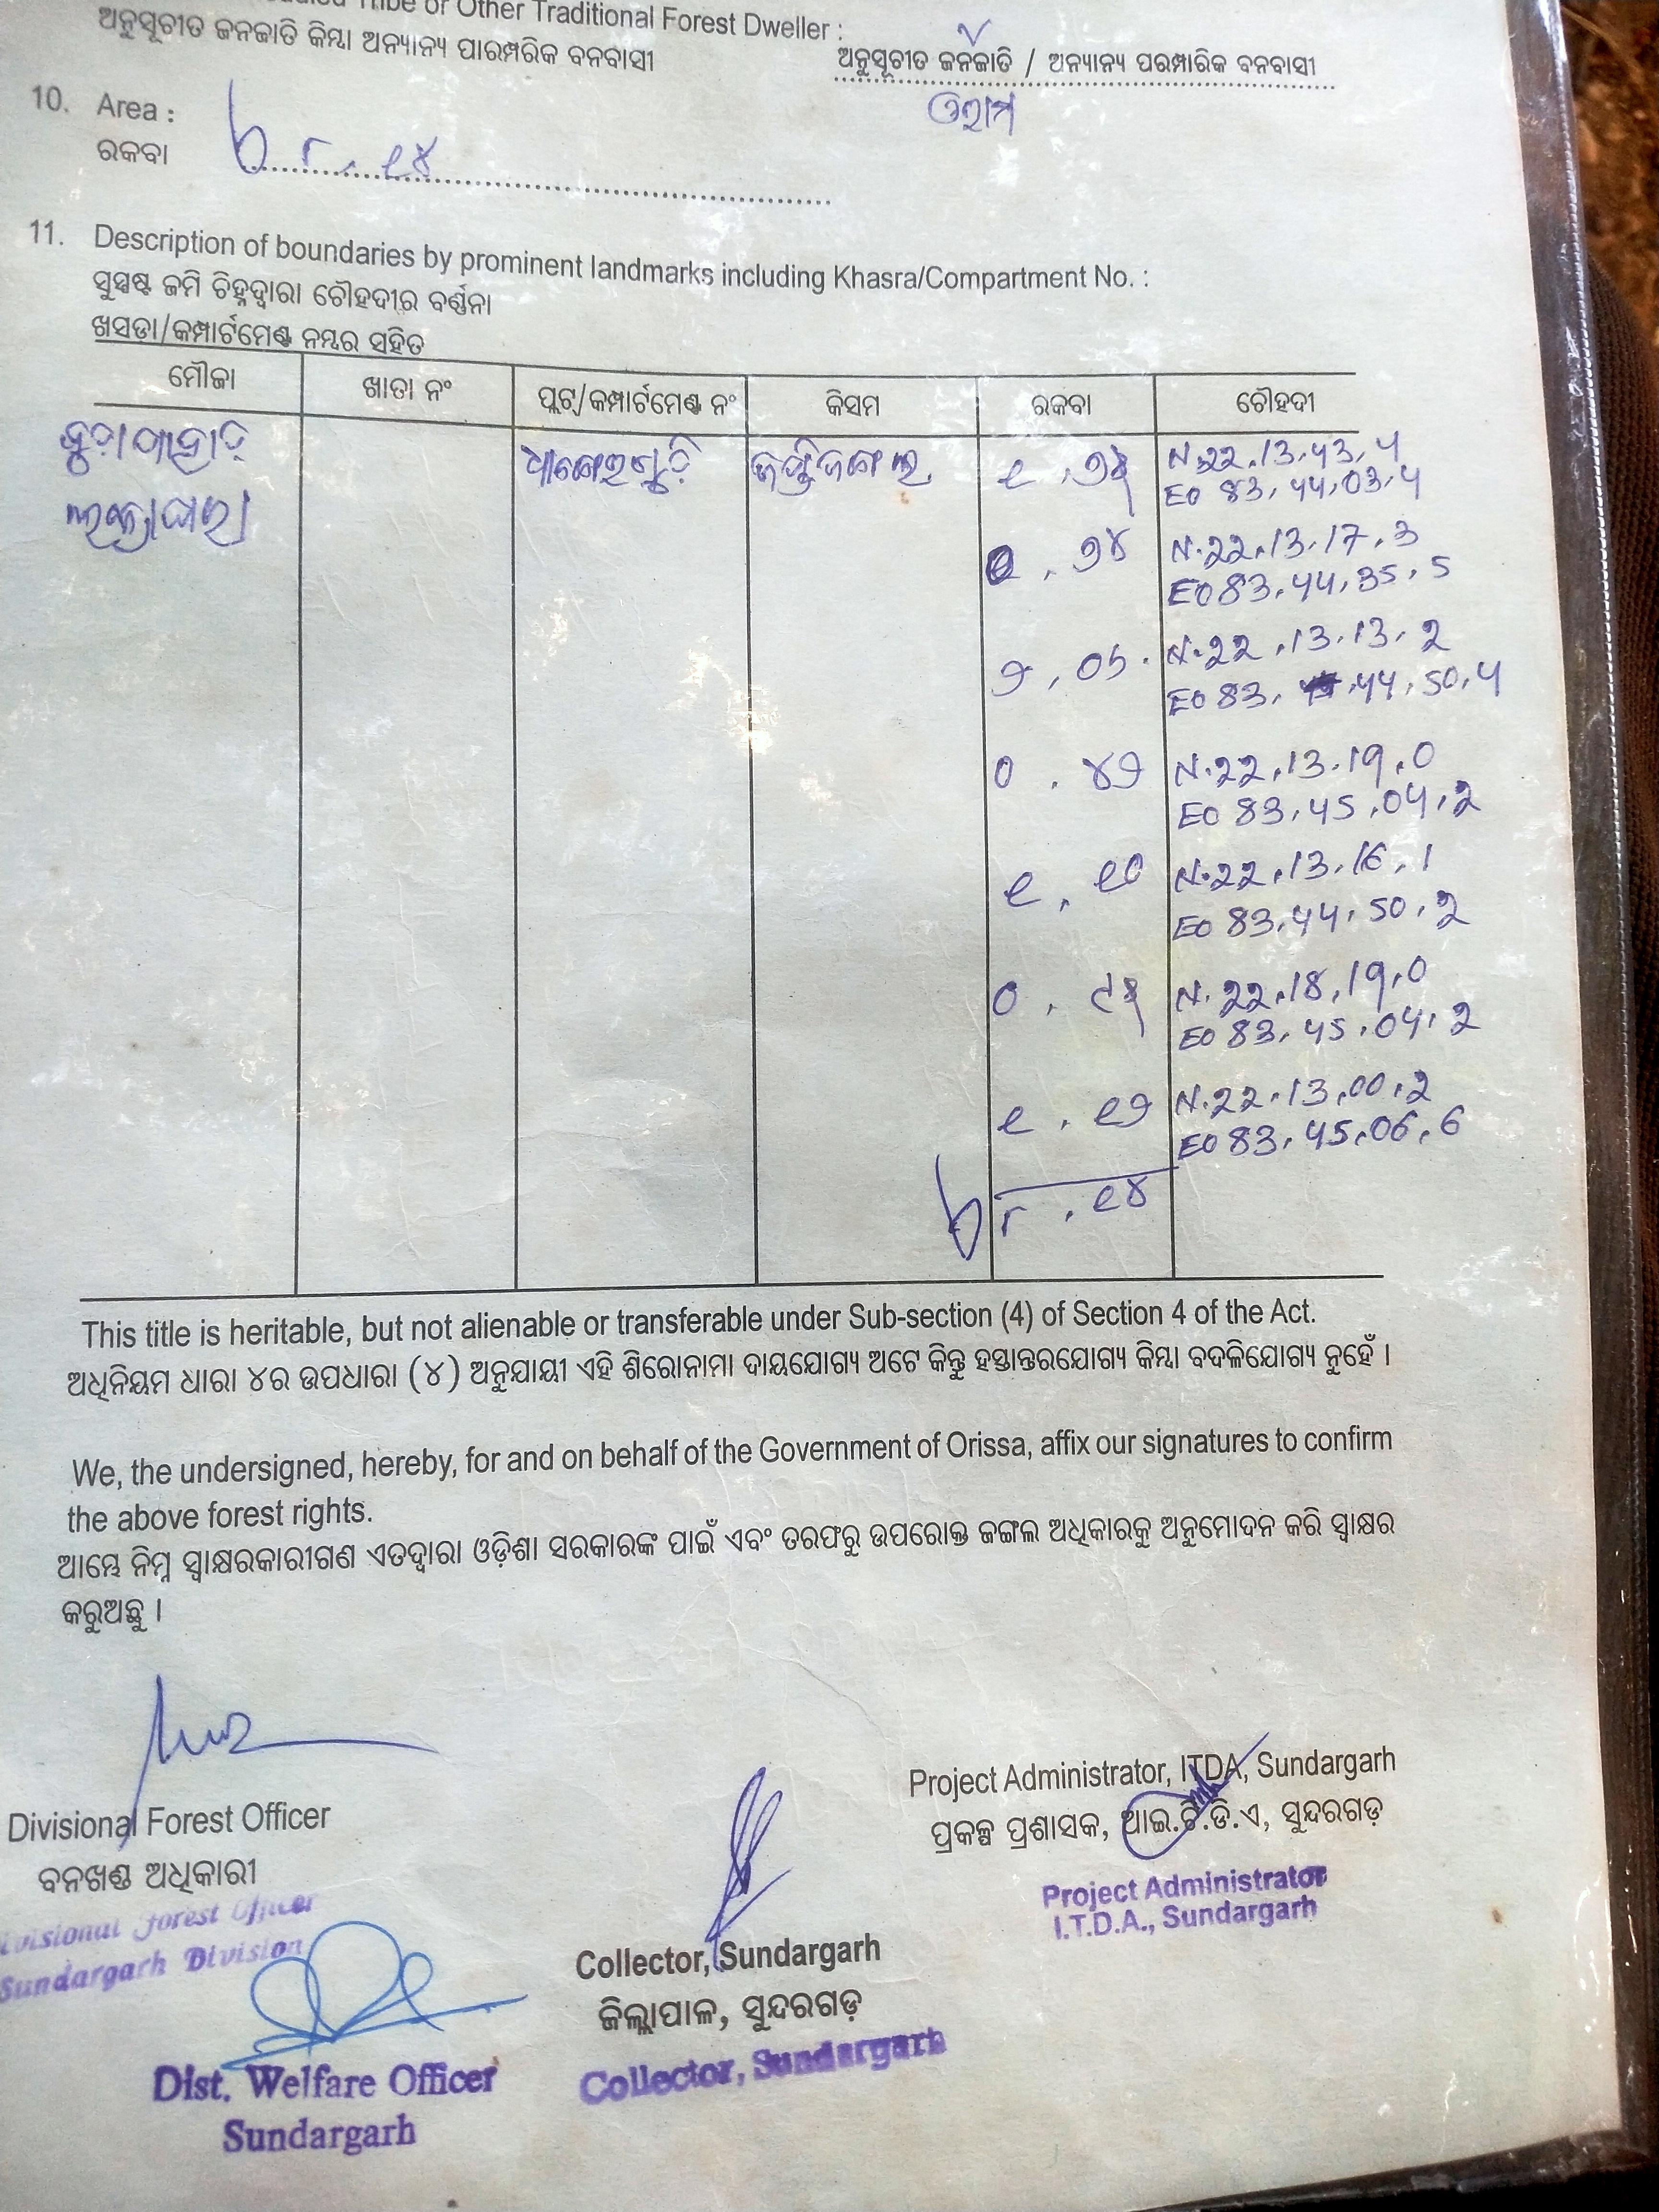 Tribe or Other Traditional Forest Dweller :
ଅନୁସୂଚୀତ ଜନଜାତି କିମ୍ବା ଅନ୍ୟାନ୍ୟ ପାରମ୍ପରିକ ବନବାସୀ
ଅନୁସୂଚୀତ ଜନଜାତି / ଅନ୍ୟାନ୍ୟ ପରମ୍ପାରିକ ବନବାସୀ
ଓରାମ
10. Area :
ରକବା ୮.୧୪
11. Description of boundaries by prominent landmarks including Khasra/Compartment No. :
ସୁସ୍ପଷ୍ଟ ଜମି ଚିହ୍ନଦ୍ୱାରା ଚୌହଦୀର ବର୍ଣ୍ଣନା
ଖସଡା/କମ୍ପାର୍ଟମେଣ୍ଟ ନମ୍ବର ସହିତ
ମୌଜା ଖାତା ନଂ ପ୍ଲଟ୍/କମ୍ପାର୍ଟମେଣ୍ଟ ନଂ କିସମ ରକବା ଚୌହଦୀ
N.22.13.43.4
E0 83.44.03.4
୦.୨୪ N.22.13.17.3
E0 83.44.35.5
୨.୦୨ N.22.13.13.2
E0 83.44.50.4
୦.୪୨ N.22.13.19.0
E0 83.45.04.2
୧.୧୦ N.22.13.16.1
E0 83.44.50.2
N.22.18.19.0
E0 83.45.04.2
୧.୧୨ N.22.13.00.2
E0 83.45.06.6
୮.୧୪
This title is heritable, but not alienable or transferable under Sub-section (4) of Section 4 of the Act.
ଅଧିନିୟମ ଧାରା ୪ର ଉପଧାରା (୪) ଅନୁଯାୟୀ ଏହି ଶିରୋନାମା ଦାୟଯୋଗ୍ୟ ଅଟେ କିନ୍ତୁ ହସ୍ତାନ୍ତରଯୋଗ୍ୟ କିମ୍ବା ବଦଳିଯୋଗ୍ୟ ନୁହେଁ ।
We, the undersigned, hereby, for and on behalf of the Government of Orissa, affix our signatures to confirm
the above forest rights.
ଆମ୍ଭେ ନିମ୍ନ ସ୍ୱାକ୍ଷରକାରୀଗଣ ଏତଦ୍ୱାରା ଓଡ଼ିଶା ସରକାରଙ୍କ ପାଇଁ ଏବଂ ତରଫରୁ ଉପରୋକ୍ତ ଜଙ୍ଗଲ ଅଧିକାରକୁ ଅନୁମୋଦନ କରି ସ୍ୱାକ୍ଷର
କରୁଅଛୁ ।
Project Administrator, ITDA, Sundargarh
ପ୍ରକଳ୍ପ ପ୍ରଶାସକ, ଆଇ.ଟି.ଡି.ଏ, ସୁନ୍ଦରଗଡ଼
Project Administrator
I.T.D.A., Sundargarh
Divisional Forest Officer
ବନଖଣ୍ଡ ଅଧିକାରୀ
Divisional Forest Officer
Sundargarh Division
Collector, Sundargarh
ଜିଲ୍ଲାପାଳ, ସୁନ୍ଦରଗଡ଼
Collector, Sundargarh
Dist. Welfare Officer
Sundargarh